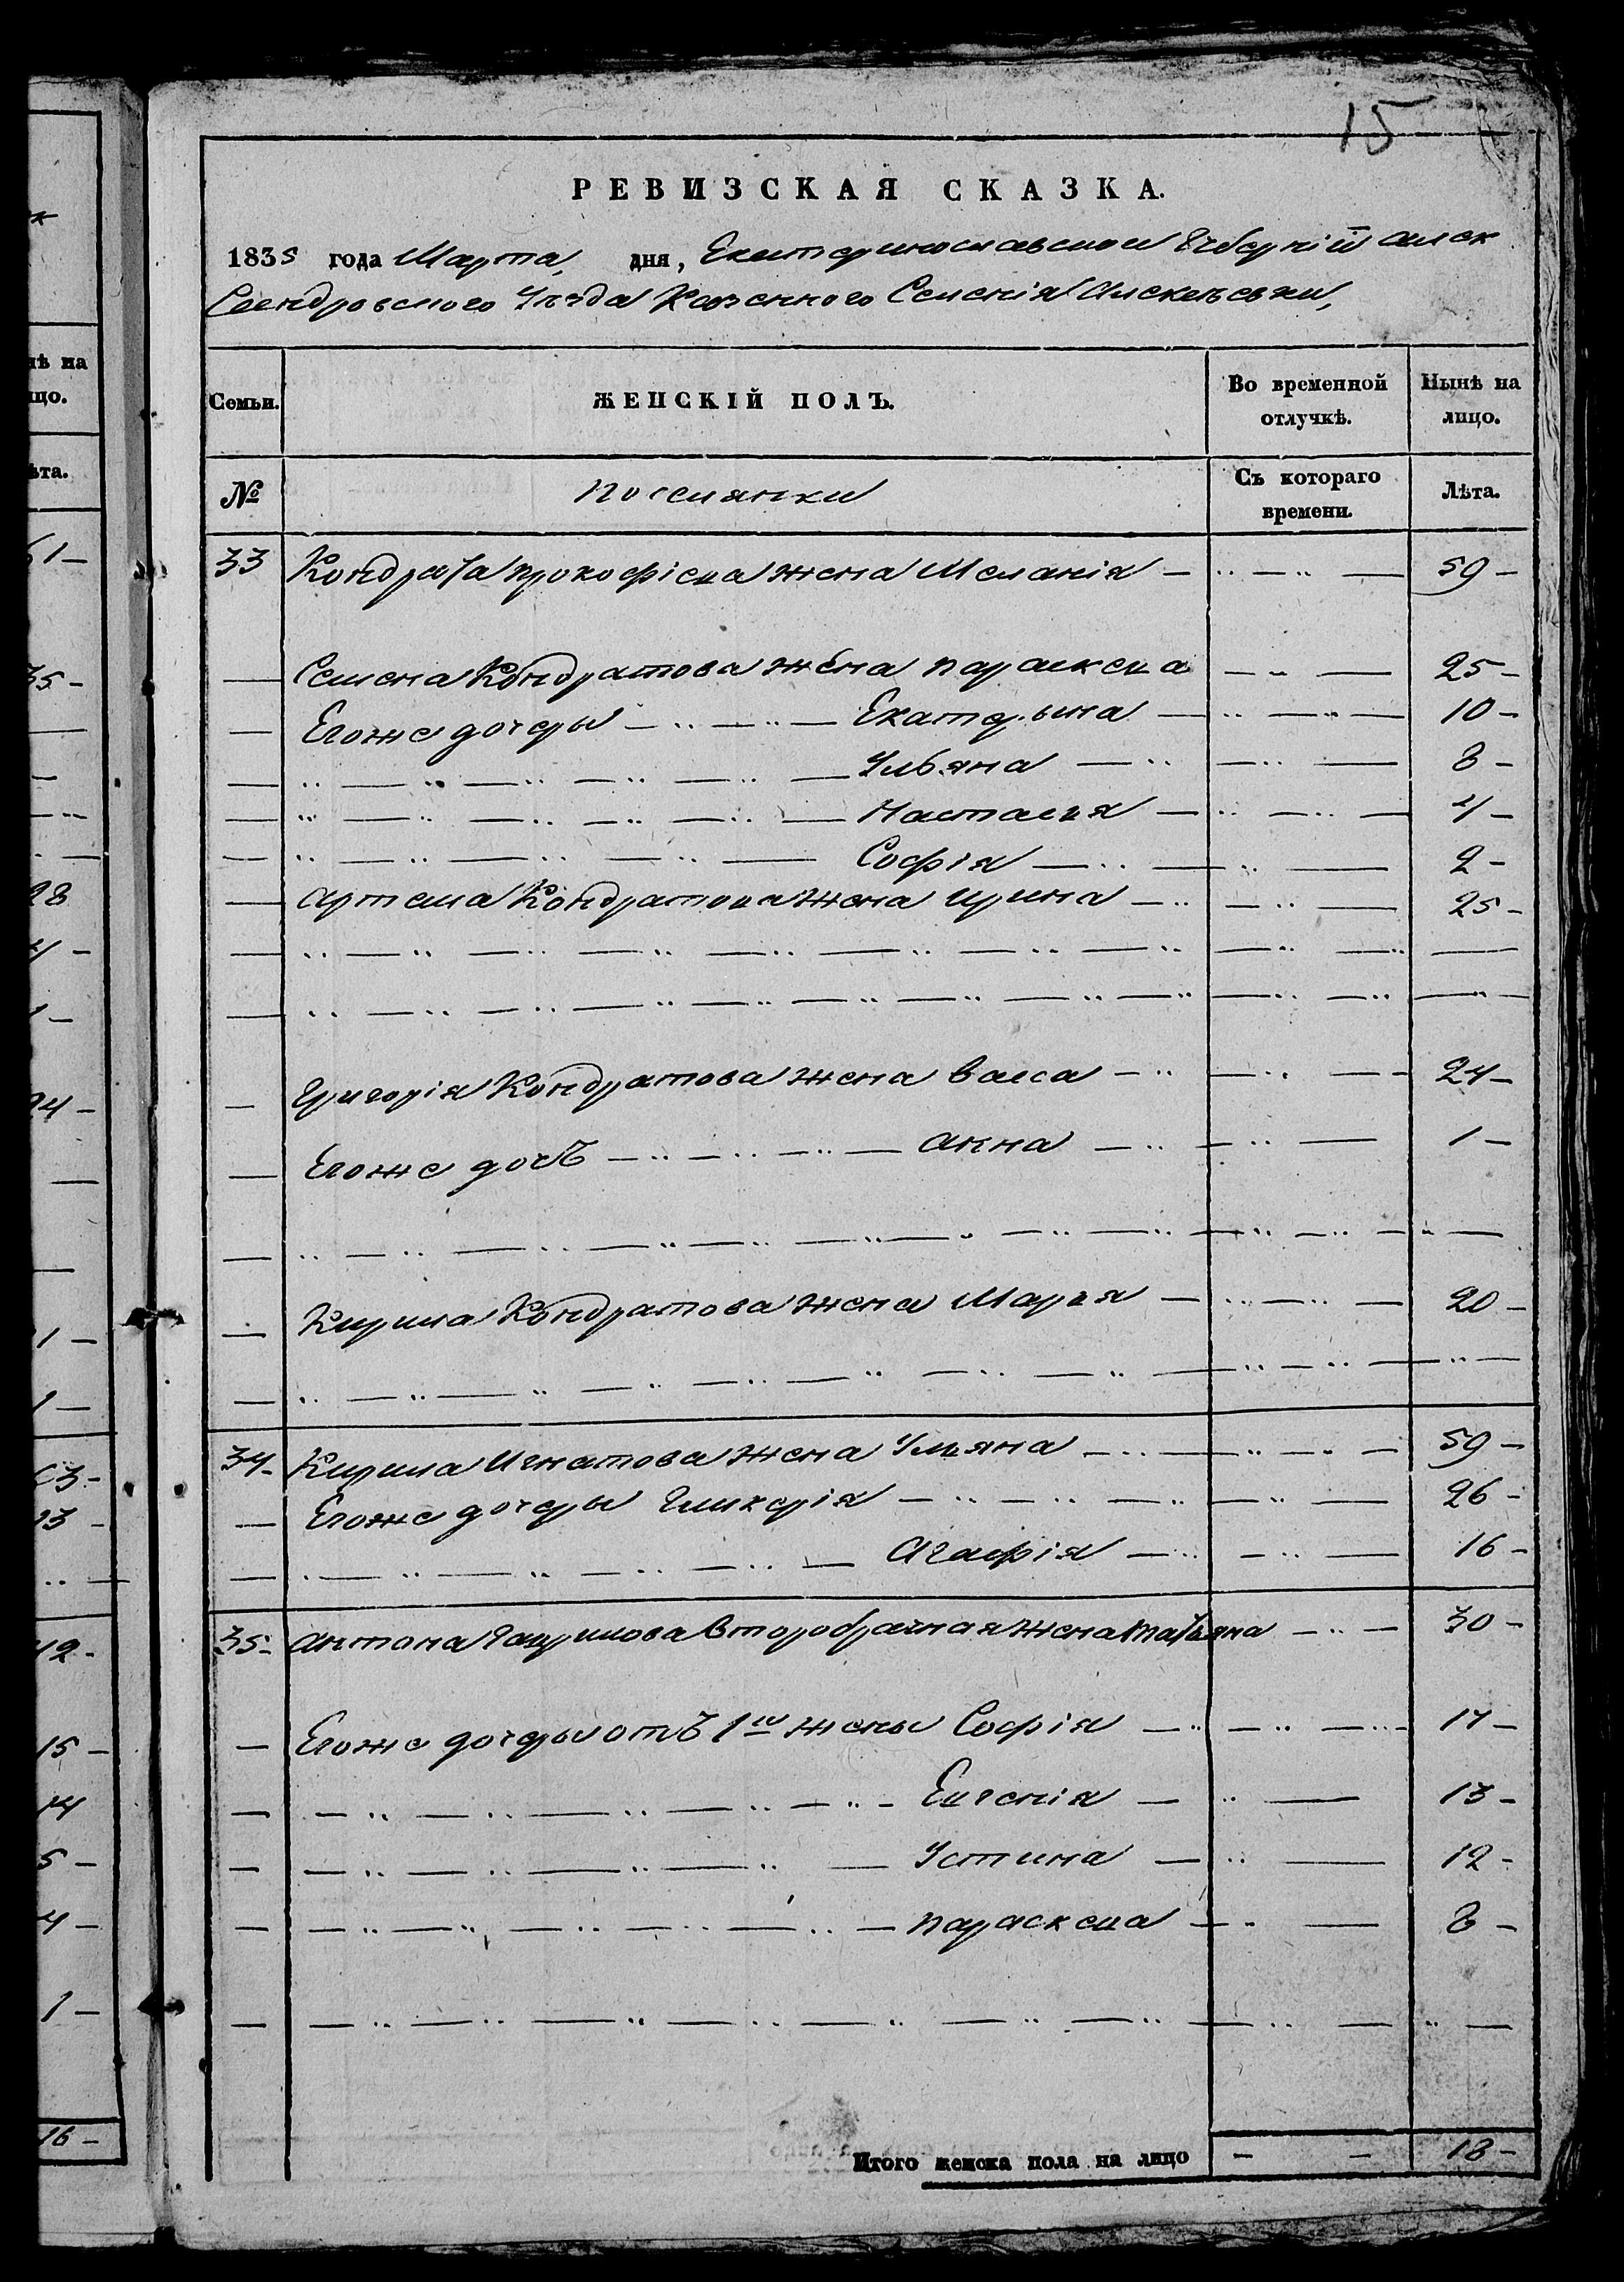 15
РЕВИЗСКАЯ СКАЗКА.
1835 года Марта, дня, Екатеринославской Губерніи Алек
сендровского Уѣзда Казенного Селенія Алексѣевки,
Семьи. ЖЕНСКІЙ ПОЛЪ. Во временной отлучкѣ. Нынѣ на лицо.
№ Поселянки Съ котораго времени. Лѣта.
33 Кондрата Прокофіева жена Меланія — 59 —
— Семена Кондратова жена Параскева — 25 —
— Егоже дочеры — Екатерына — 10 —
— Ульяна — 8 —
— Настасия — 4 —
— Софія — 2 —
— Артема Кондратова жена Ирина — 25 —
— Григорія Кондратова жена Васса — 24 —
— Егоже дочъ — Анна — 1 —
— Кирила Кондратова жена Мария — 20 —
34 Кирила Игнатова жена Ульяна — 59 —
— Егоже дочеры Гликерія — 26 —
— Агафія — 16 —
35 Антона Гаврилова второбрачная жена Татьяна — 30 —
— Егоже дочеры отъ 1й жены Софія — 17 —
— Евгенія — 13 —
— Устина — 12 —
— Параскева — 8 —
Итого женска пола на лицо — — 18 —
нѣ на
цо.
ѣта.
61 —
35 —
28
4 —
1 —
24 —
1 —
1 —
63 —
15 —
14
5 —
4 —
1 —
16 —